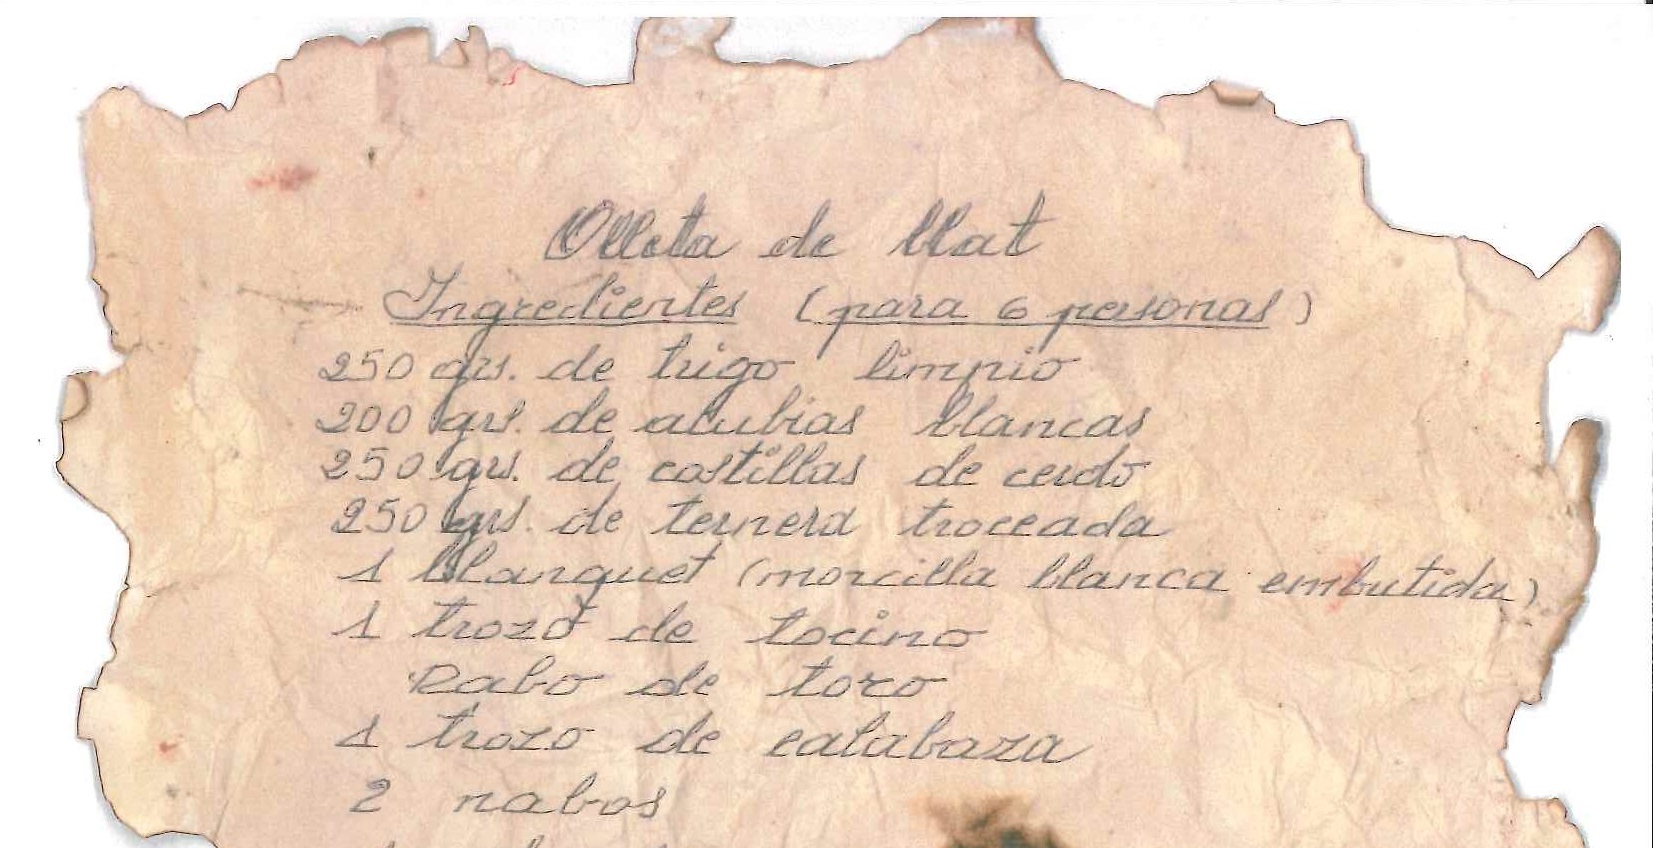 Olleta de blat
Ingredientes (para 6 personas)
250 grs. de trigo limpio
200 grs. de alubias blancas
250 grs. de costillas de cerdo
250 grs. de ternera troceada
1 blanquet (morcilla blanca embutida)
1 trozo de tocino
Rabo de toro
1 trozo de calabaza
2 nabos